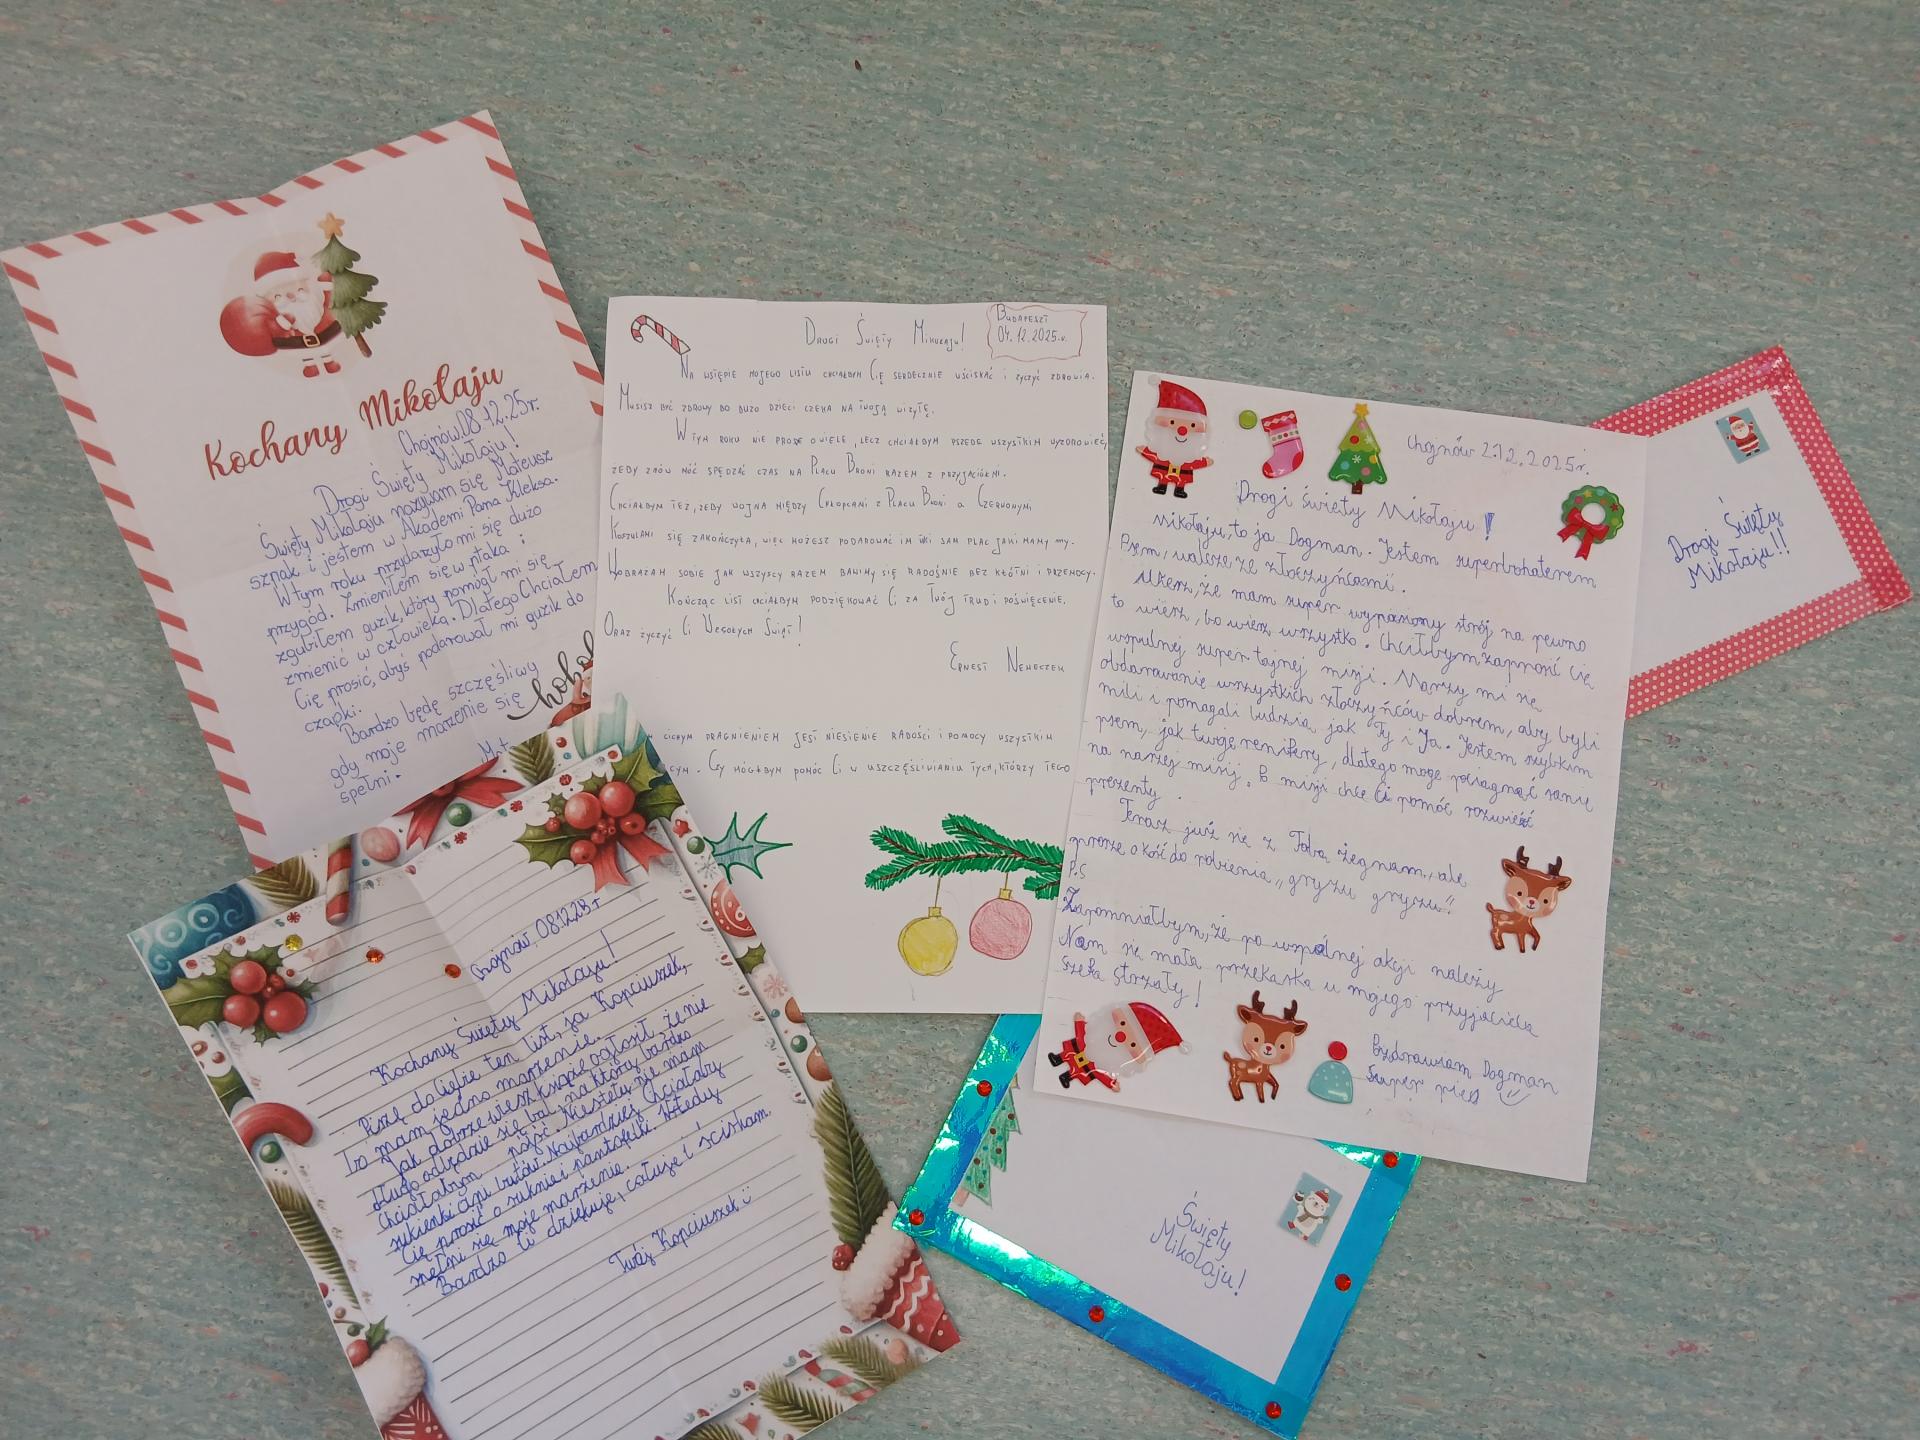 Kochany Mikołaju
Chojnów, 08.12.25r.
Drogi Święty Mikołaju!
Święty Mikołaju nazywam się Mateusz
szpak i jestem w Akademi Pana Kleksa.
W tym roku przydarzyło mi się dużo
przygód. Zmieniłem się w ptaka i
zgubiłem guzik, który pomógł mi się
zmienić w człowieka. Dlatego Chciałem
Cię prosić, abyś podarował mi guzik do
czapki.
Bardzo będę szczęśliwy
gdy moje marzenie się
spełni.
hoho
Budapeszt
04.12.2025.r.
Drogi Święty Mikołaju!
Na wstępie mojego listu chciałbym Cię serdecznie uściskać i życzyć zdrowia.
Musisz być zdrowy bo dużo dzieci czeka na twoją wizytę.
W tym roku nie proszę o wiele, lecz chciałbym przede wszystkim wyzdrowieć,
żeby znów móc spędzać czas na Placu Broni razem z przyjaciółmi.
Chciałbym też, żeby wojna między Chłopcami z Placu Broni a Czerwonymi
Koszulami się zakończyła, więc możesz podarować im taki sam plac jaki mamy my.
Wobrażam sobie jak wszyscy razem bawimy się radośnie bez kłótni i przemocy.
Kończąc list chciałbym podziękować Ci za Twój trud i poświęcenie.
Oraz życzyć Ci Wesołych Świąt!
Ernest Nemeczek
cichym pragnieniem jest niesienie radości i pomocy wszystkim
cym. Czy mógłbym pomóc Ci w uszczęśliwianiu tych, którzy tego
Chojnów 2.12.2025r.
Drogi Święty Mikołaju!
Mikołaju, to ja Dogman. Jestem superbohaterem
Psem, walczę ze złoczyńcami.
Wiesz, że mam super wyposażony strój na pewno
to wiesz, bo wiesz wszystko. Chciałbym zaprosić Cię
wspulnej super tajnej misji. Marzy mi się
obdarowanie wszystkich złoczyńców dobrem, aby byli
mili i pomagali ludzią, jak Ty i Ja. Jestem szybkim
psem, jak twoje renifery, dlatego mogę pociągnąć sanie
na naszej misji. B misji chcę Ci pomóc rozwieźć
prezenty.
Teraz już się z Tobą żegnam, ale
proszę o kość do robienia "gryzu gryzu"!
P.S
Zapomniałbym, że po wspólnej akcji należy
Nam się mała przekąska u mojego przyjaciela
szefa Strzały!
Pozdrawiam Dogman
Super pies
Drogi Święty
Mikołaju!!
Chojnów, 08.12.25r
Kochany Święty Mikołaju!
Piszę do Ciebie ten list, ja Kopciuszek,
bo mam jedno marzenie.
Jak dobrze wiesz książę ogłosił, że nie
długo odbędzie się bal, na który bardzo
chciałabym pójść. Niestety nie mam
sukienki ani butów. Najbardziej Chciałabym
Cię prosić o suknie i pantofelki. Wtedy
spełni się moje marzenie.
Bardzo Ci dziękuję, całuję i ściskam
Twój Kopciuszek
Święty
Mikołaju!